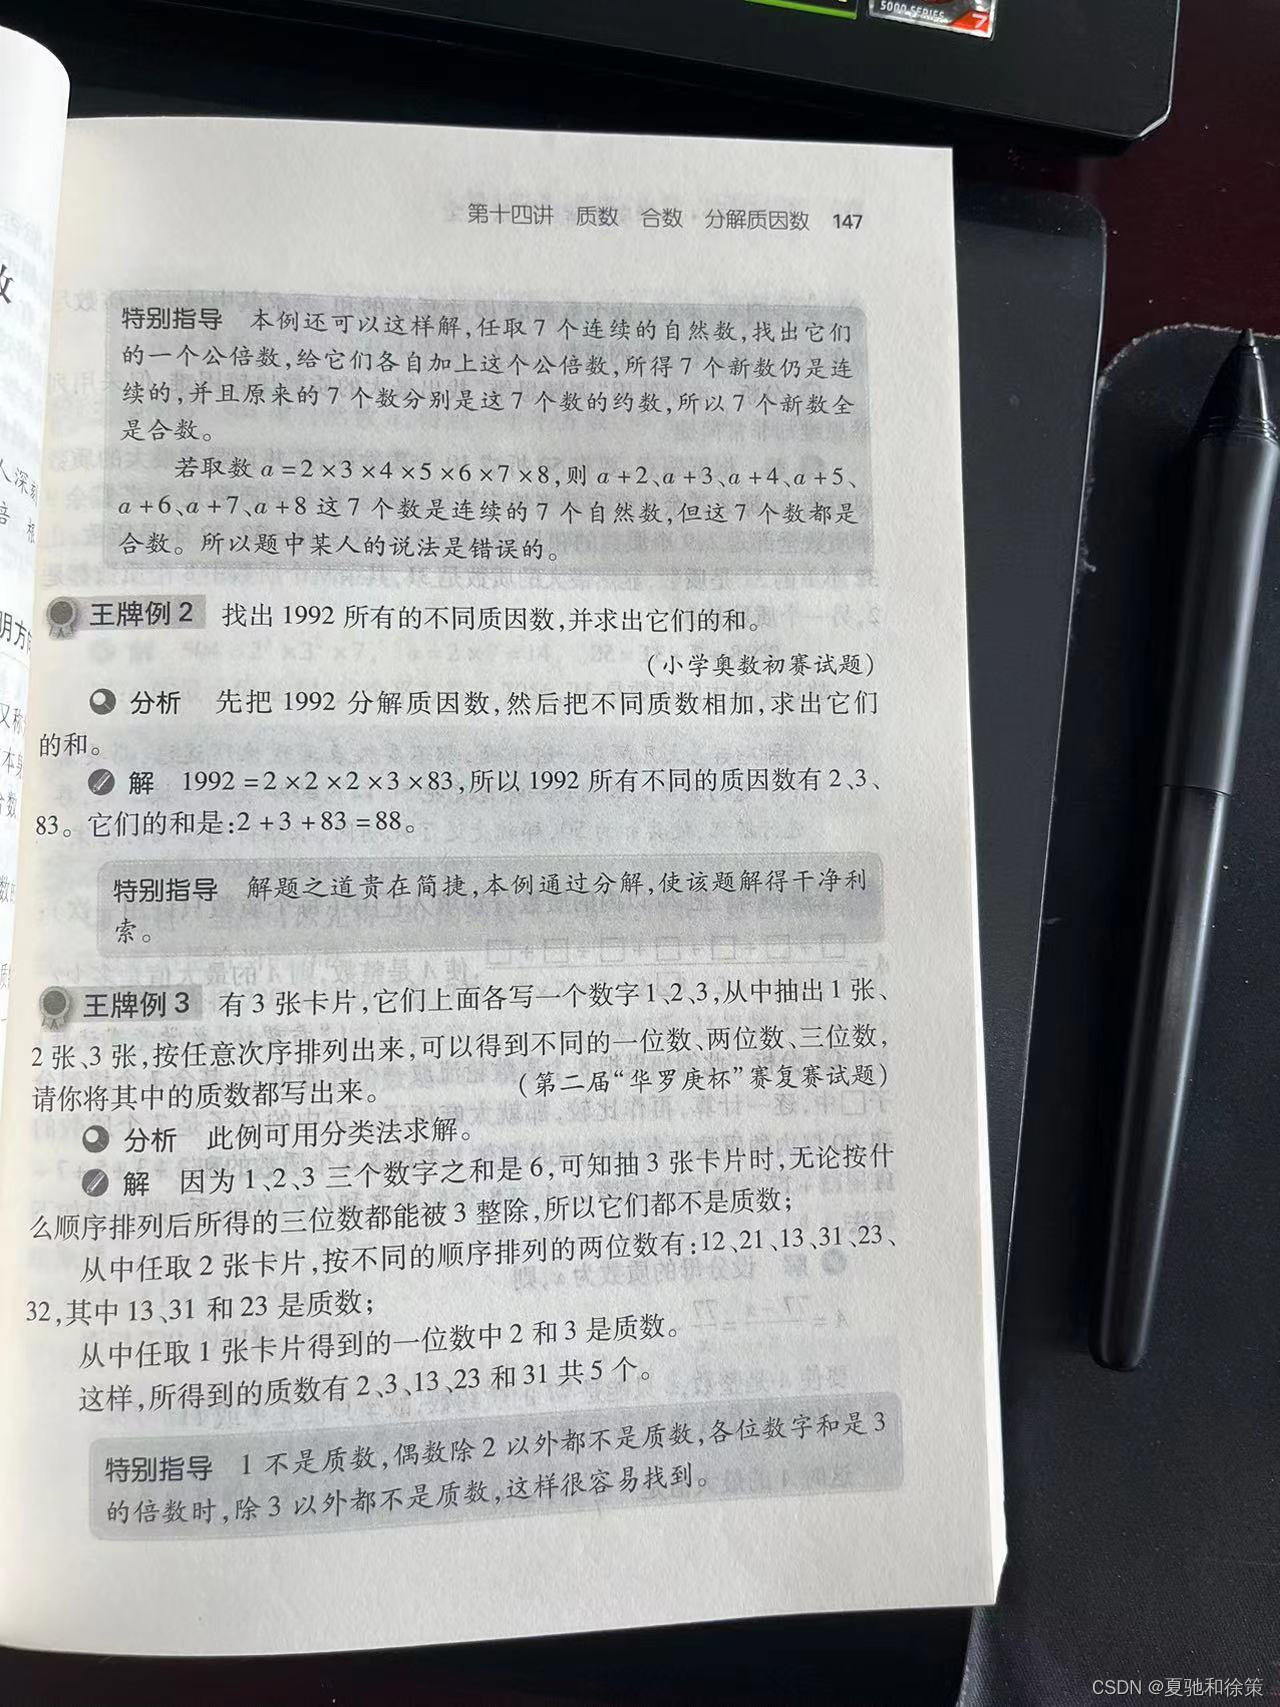 5000 SERIES
7
第十四讲 质数 合数 分解质因数 147
特别指导 本例还可以这样解,任取7个连续的自然数,找出它们
的一个公倍数,给它们各自加上这个公倍数,所得7个新数仍是连
续的,并且原来的7个数分别是这7个数的约数,所以7个新数全
是合数。
若取数a=2×3×4×5×6×7×8,则a+2、a+3、a+4、a+5、
a+6、a+7、a+8这7个数是连续的7个自然数,但这7个数都是
合数。所以题中某人的说法是错误的。
王牌例2 找出1992所有的不同质因数,并求出它们的和。
(小学奥数初赛试题)
分析 先把1992分解质因数,然后把不同质数相加,求出它们
的和。
解 1992=2×2×2×3×83,所以1992所有不同的质因数有2、3、
83。它们的和是:2+3+83=88。
特别指导 解题之道贵在简捷,本例通过分解,使该题解得干净利
索。
王牌例3 有3张卡片,它们上面各写一个数字1、2、3,从中抽出1张、
2张、3张,按任意次序排列出来,可以得到不同的一位数、两位数、三位数,
请你将其中的质数都写出来。 (第二届“华罗庚杯”赛复赛试题)
分析 此例可用分类法求解。
解 因为1、2、3三个数字之和是6,可知抽3张卡片时,无论按什
么顺序排列后所得的三位数都能被3整除,所以它们都不是质数;
从中任取2张卡片,按不同的顺序排列的两位数有:12、21、13、31、23、
32,其中13、31和23是质数;
从中任取1张卡片得到的一位数中2和3是质数。
这样,所得到的质数有2、3、13、23和31共5个。
特别指导 1不是质数,偶数除2以外都不是质数,各位数字和是3
的倍数时,除3以外都不是质数,这样很容易找到。
CSDN @夏驰和徐策